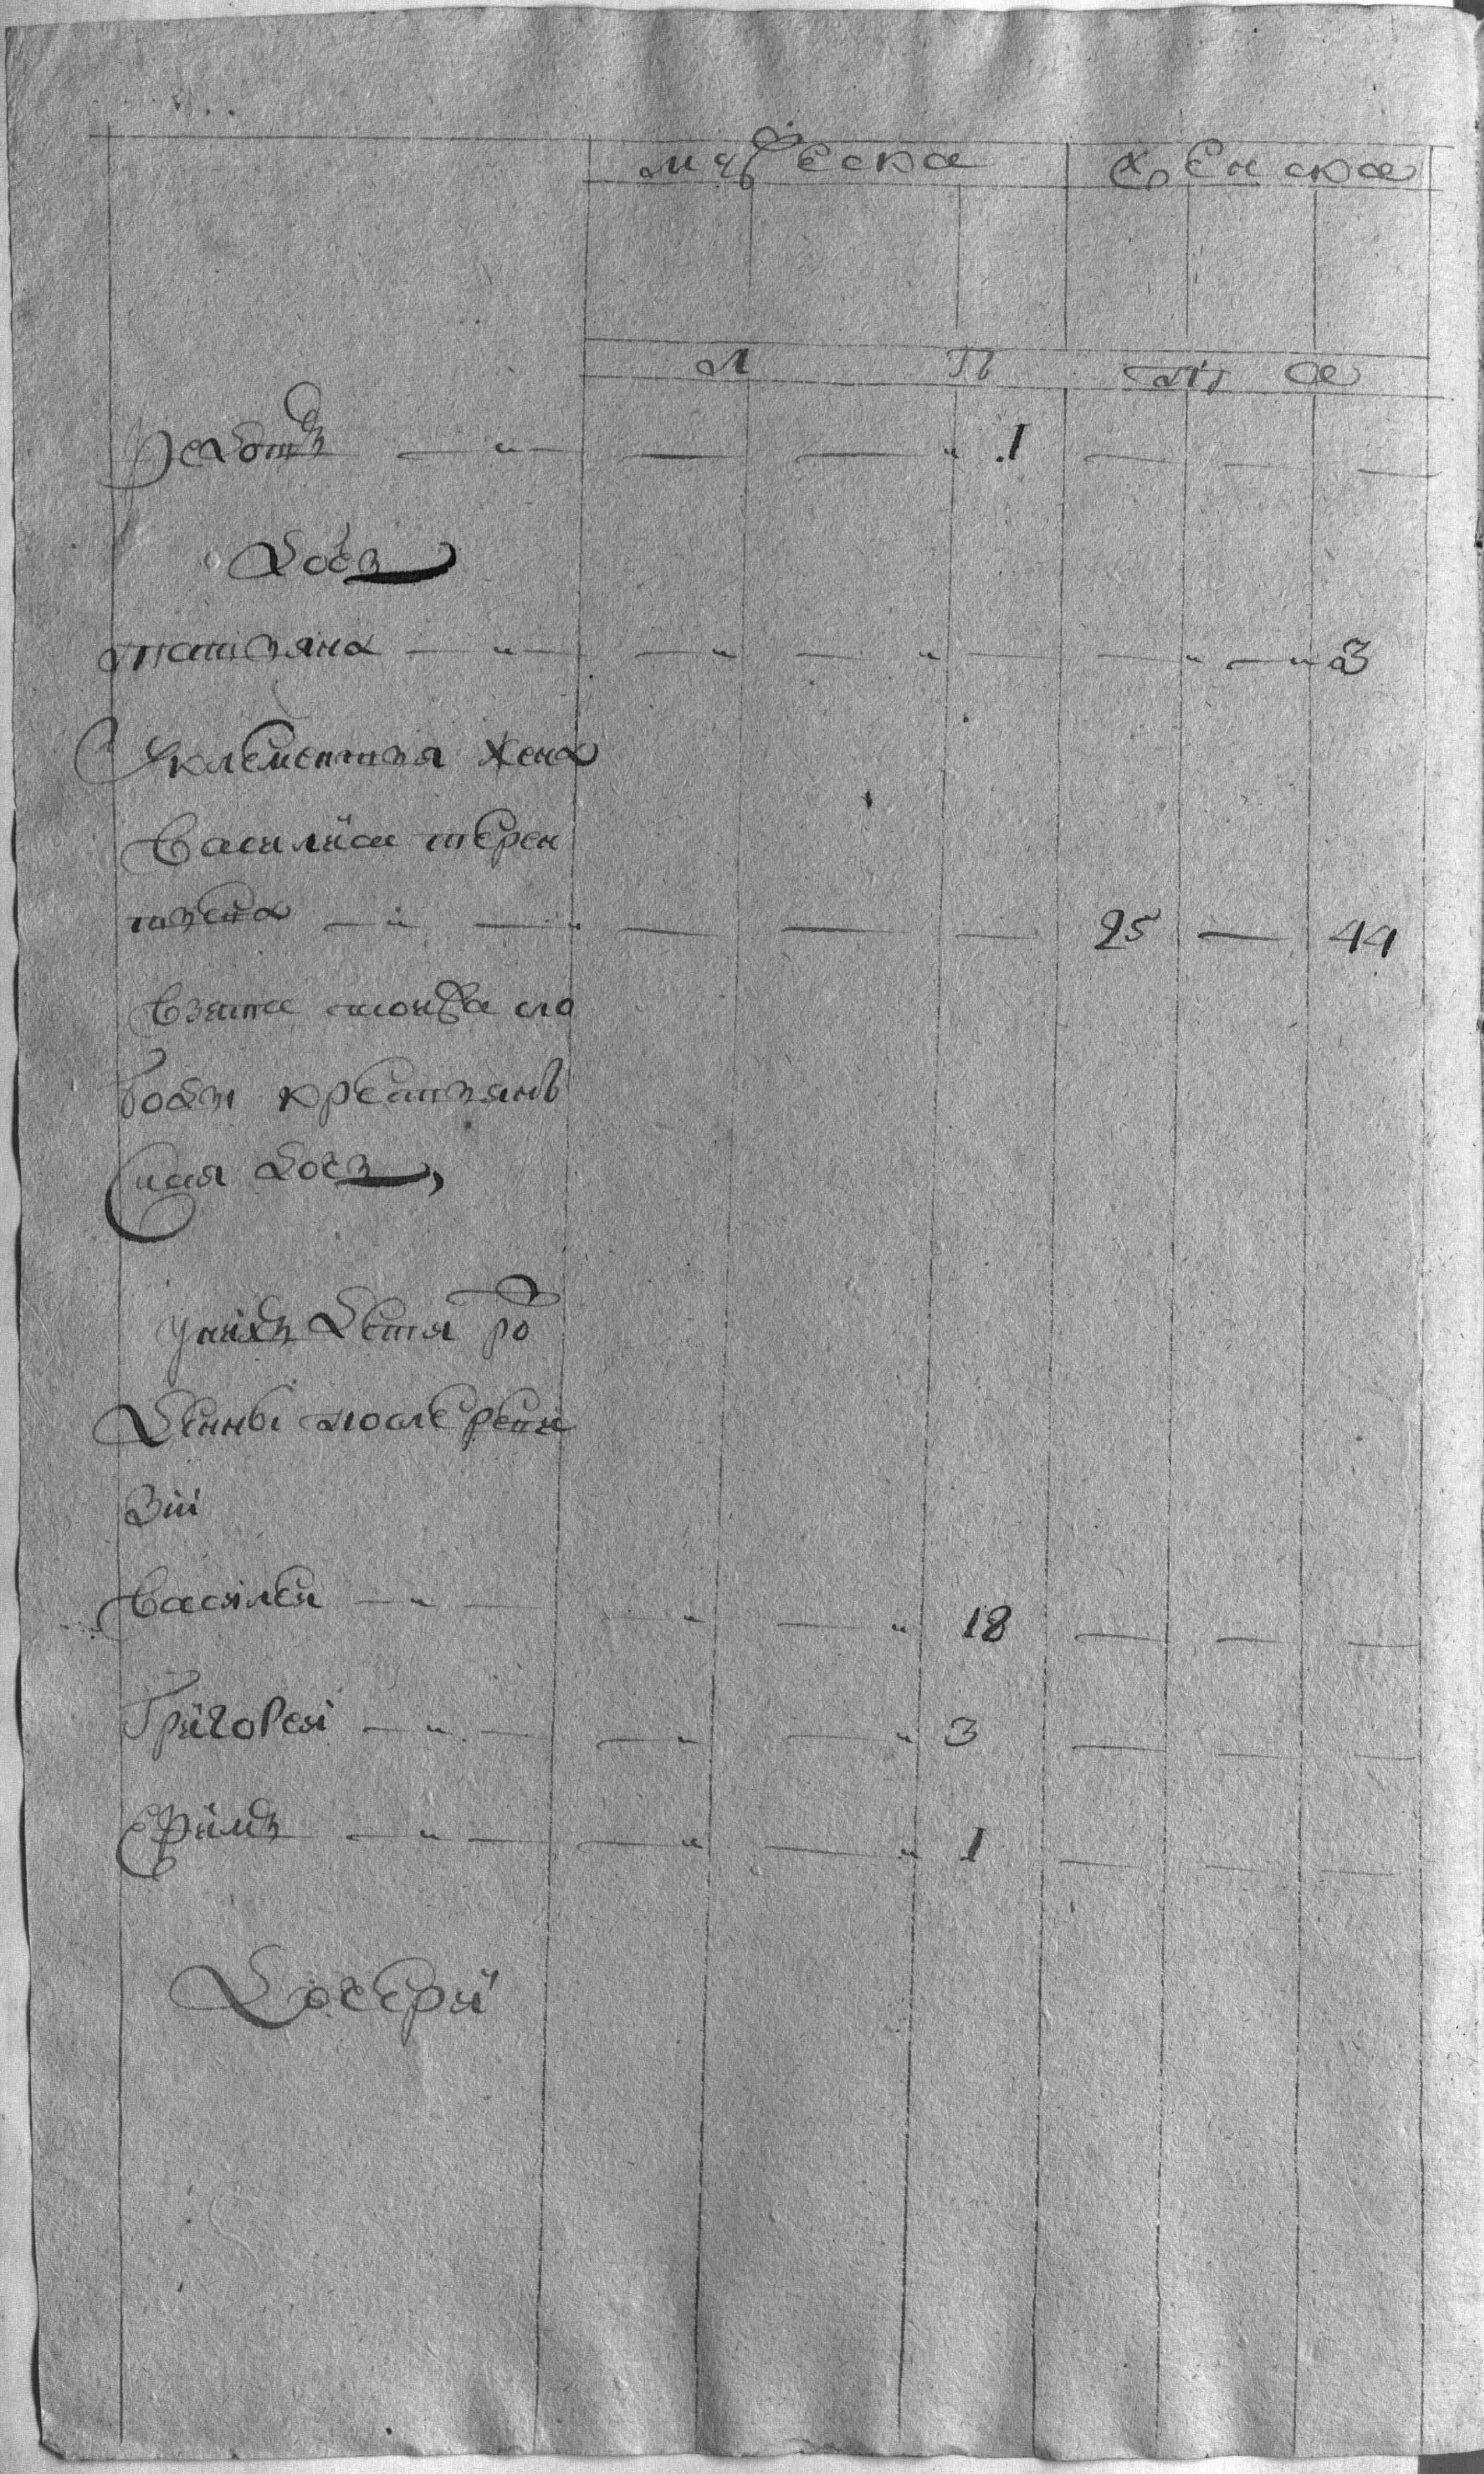 мужеска женска
л п
Федотъ — 1
Дочь
татьяна — 3
Уклементья жена
Василиса терен
тьева — 25 — 44
взята тоижа сло
боды крестьянь
ская дочь,
унихъ дети ро
денны после реви
зии
Василеи — 18
Григореи — 3
Ефимъ — 1
Дочери